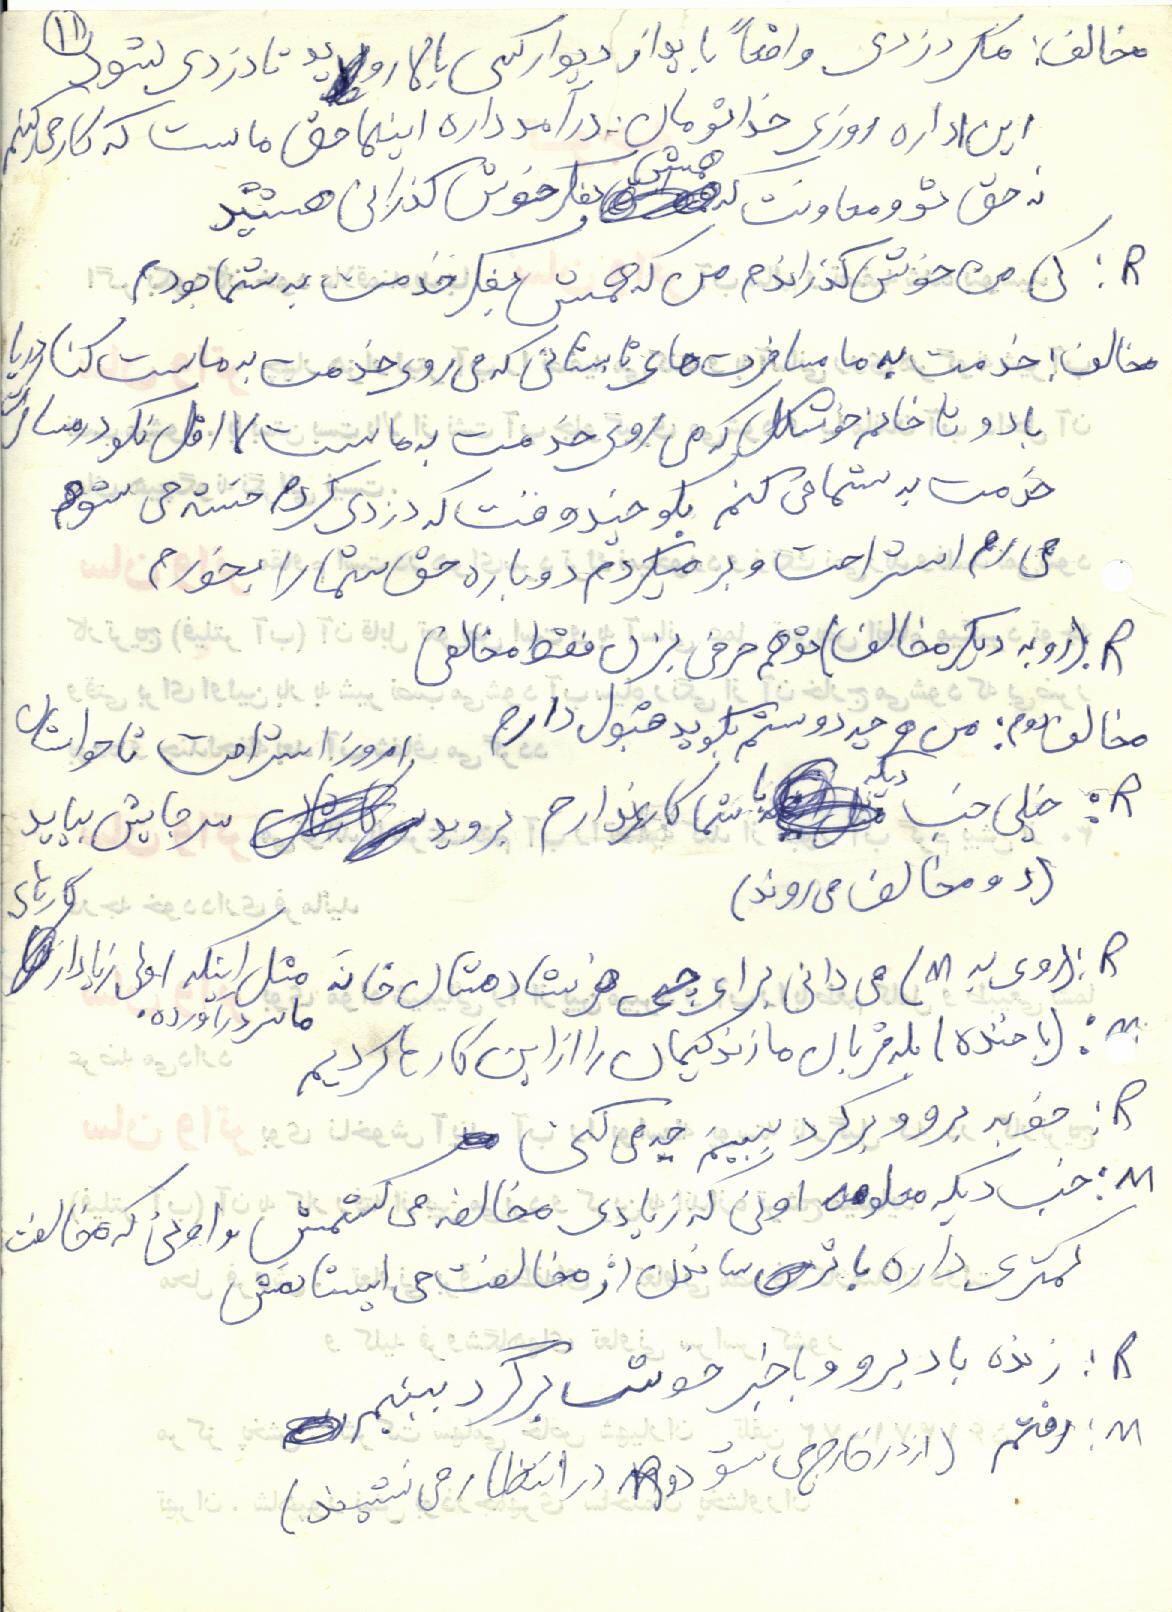 ۱۱
مخالف: مگر دزدی واقعاً باید از دیوار کسی بالا روید تا دزدی بشود
این اداره روزی خدا تومان درآمد داره اینها حق ماست که کار می‌کنیم
نه حق تو و معاونت که همش بفکر خوش گذرانی هستید
R: کی من خوش گذراندم من که همش بفکر خدمت به شما بودم
مخالف: خدمت به ما مسافرت های تابستانی که می روی خدمت به ماست کنار دریا
با دو تا خانم خوشگل که می روی خدمت به ماست لااقل نگو در مسافرت
خدمت به شما می کنم بگو چند وقت که دزدی کردم خسته می شوم
می رم استراحت و بر میگردم دوباره حق شما را بخورم
R: (رو به دیگر مخالف) تو هم حرفی بزن فقط مخالفی
مخالف دوم: من هر چه دوستم بگوید قبول دارم
R: خیلی خب دیگه با شما کار ندارم بروید امروز استراحت تا حواستان سر جایش بیاید
(دو مخالف می روند)
R: (روی به M) می دانی برای چی فرستادمشان خانه مثل اینکه اولی زیاد از کارهای ما سر درآورده.
M: (با خنده) بله قربان ما زندگیمان را از این کارها کردیم
R: خوبه برو و برگرد ببینم چه می کنی
M: خب دیگه معلومه اونی که زیادی مخالفه می کشمش و اونی که مخالفت
کمتری داره با ترساندن از مخالفت می ایستانمش
R: زنده باد برو و با خبر خوش برگرد ببینم
M: رفتم (از در خارج می شود و R در انتظار می نشیند)